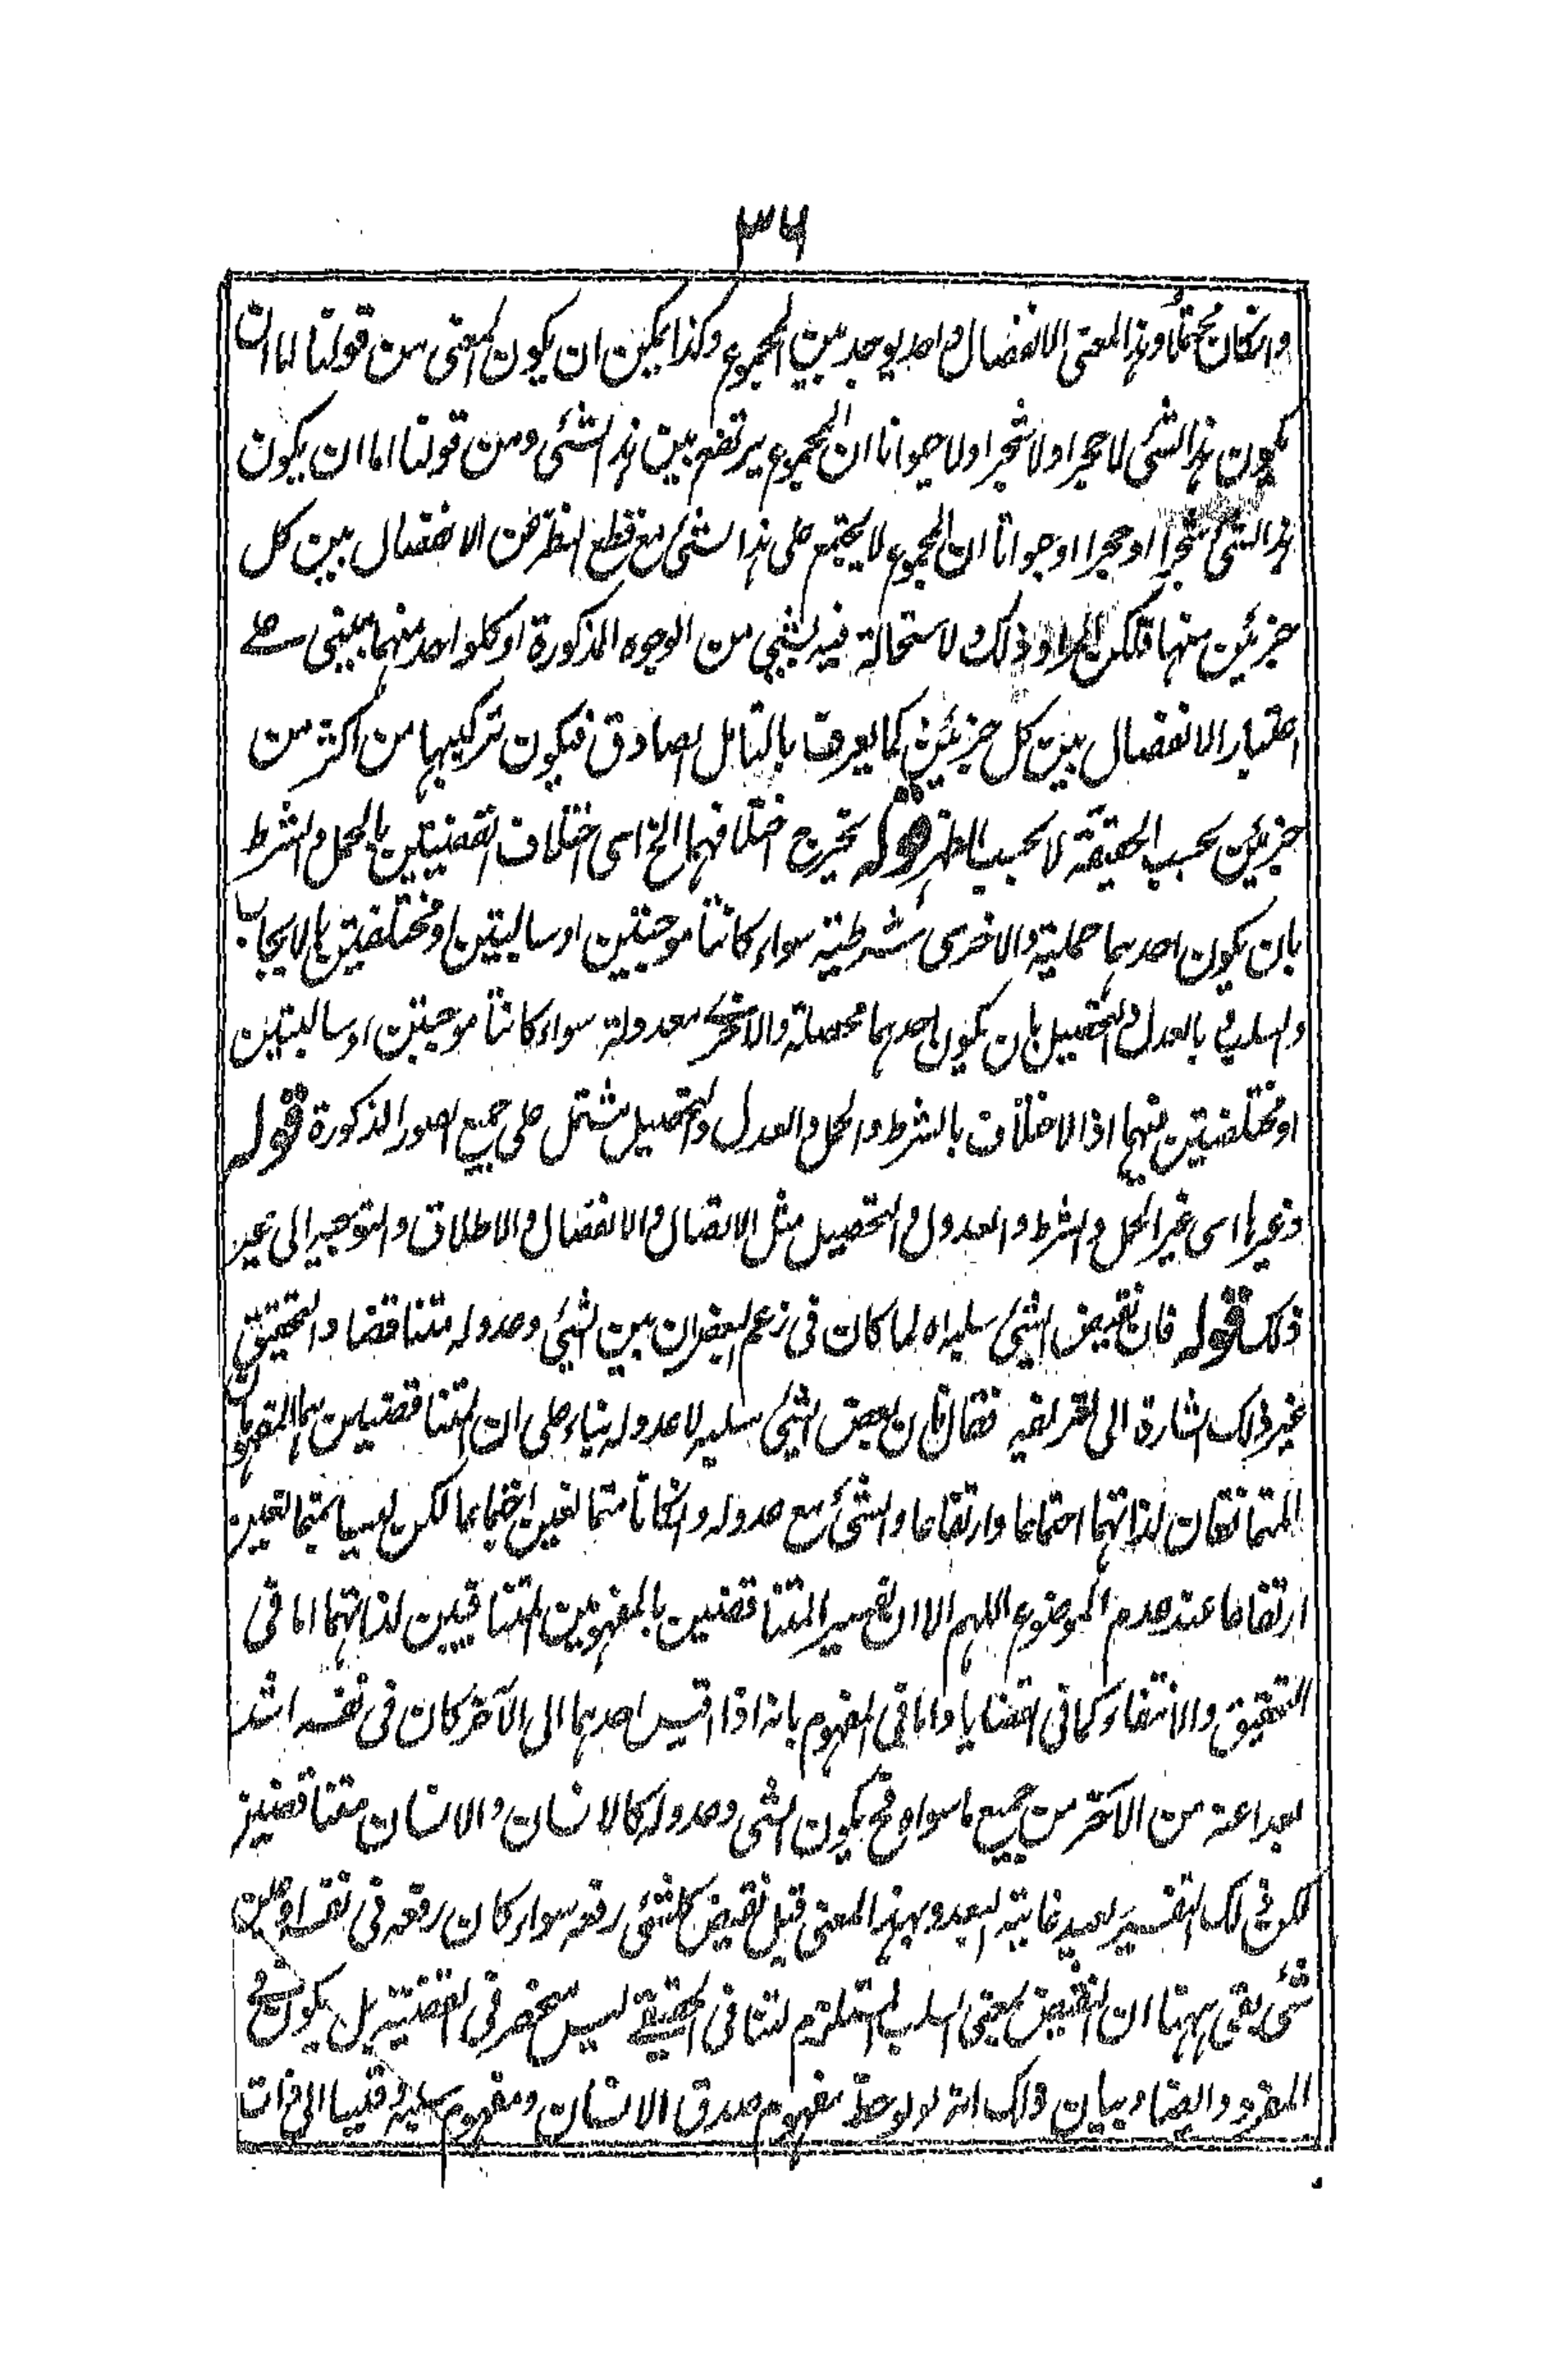 ٣٦
وانكان محتملا وهذا المعنى الانفصال واحد يوجد بين المجموع وكذا يمكن ان يكون المعنى من قولنا اما ان
يكون هذا الشئ لا حجرا او لا شجرا او لا حيوانا ان المجموع يرتفع بين هذا الشئ ومن قولنا اما ان يكون
هذا الشئ شجرا او حجرا او حيوانا ان المجموع لا يجتمع على هذا الشئ مع قطع النظر عن الانفصال بين كل
جزئين منها فليكن المراد ذلك ولا استحالة فيه بشئ من الوجوه المذكورة او كلواحد منهما مبنى على
اعتبار الانفصال بين كل جزئين كما يعرف بالتامل الصادق فيكون تركيبها من اكثر من
جزئين بحسب الحقيقة لا بحسب الظاهر قوله يخرج اختلافهما الخ اى اختلاف القضيتين بالحمل والشرط
بان يكون احدهما حملية والاخرى شرطية سواء كانتا موجبتين او سالبتين او مختلفتين بالايجاب
والسلب فى بالعدول والتحصيل بان يكون احدهما محصلة والاخرى معدولة سواء كانتا موجبتين او سالبتين
او مختلفتين منهما اذ الاختلاف بالشرط والحمل والعدول والتحصيل مشتمل على جميع الصور المذكورة قوله
وغيرها اى غير الحمل والشرط والعدول والتحصيل مثل الاتصال والانفصال والاطلاق والتوجيه الى غير
ذلك قوله فان نقيض الشئ سلبه اه لما كان فى زعم البعض ان بين الشئ وعدوله تناقضا والتحقيق
غير ذلك اشارة الى تعريفه فقال فان نقيض الشئ سلبه لا عدوله بناء على ان المتناقضين هما المفهومان
المتمانعان لذاتهما اجتماعا وارتفاعا والشئ مع عدوله وانكانا متمانعين اجتماعا لكن ليسا بمتمانعين
ارتفاعا عند عدم الموضوع اللهم الا ان تفسير المتناقضين بالمفهومين المتنافيين لذاتهما اما فى
التحقيق والانتفاء كما فى القضايا واما فى المفهوم بانه اذا قيس احدهما الى الآخر كان فى نفسه اشد
بعدا عنه من الآخر من جميع ما سواه فح يكون الشئ وعدوله كالانسان واللاانسان متناقضين
لكن ذلك التفسير بعيد غاية البعد وبهذا المعنى قيل نقيض كل شئ رفعه سواء كان رفعه فى نفسه او عن
شئ بقى ههنا ان النقيض بمعنى السلب المستلزم لتنافى الحقيقى ليس منحصر فى القضية بل يكون فى
المفرد والصاد وبيان ذلك انه لو لوحظ مفهوم صدق الانسان ومفهوم سلبه وقيسا الى ذات